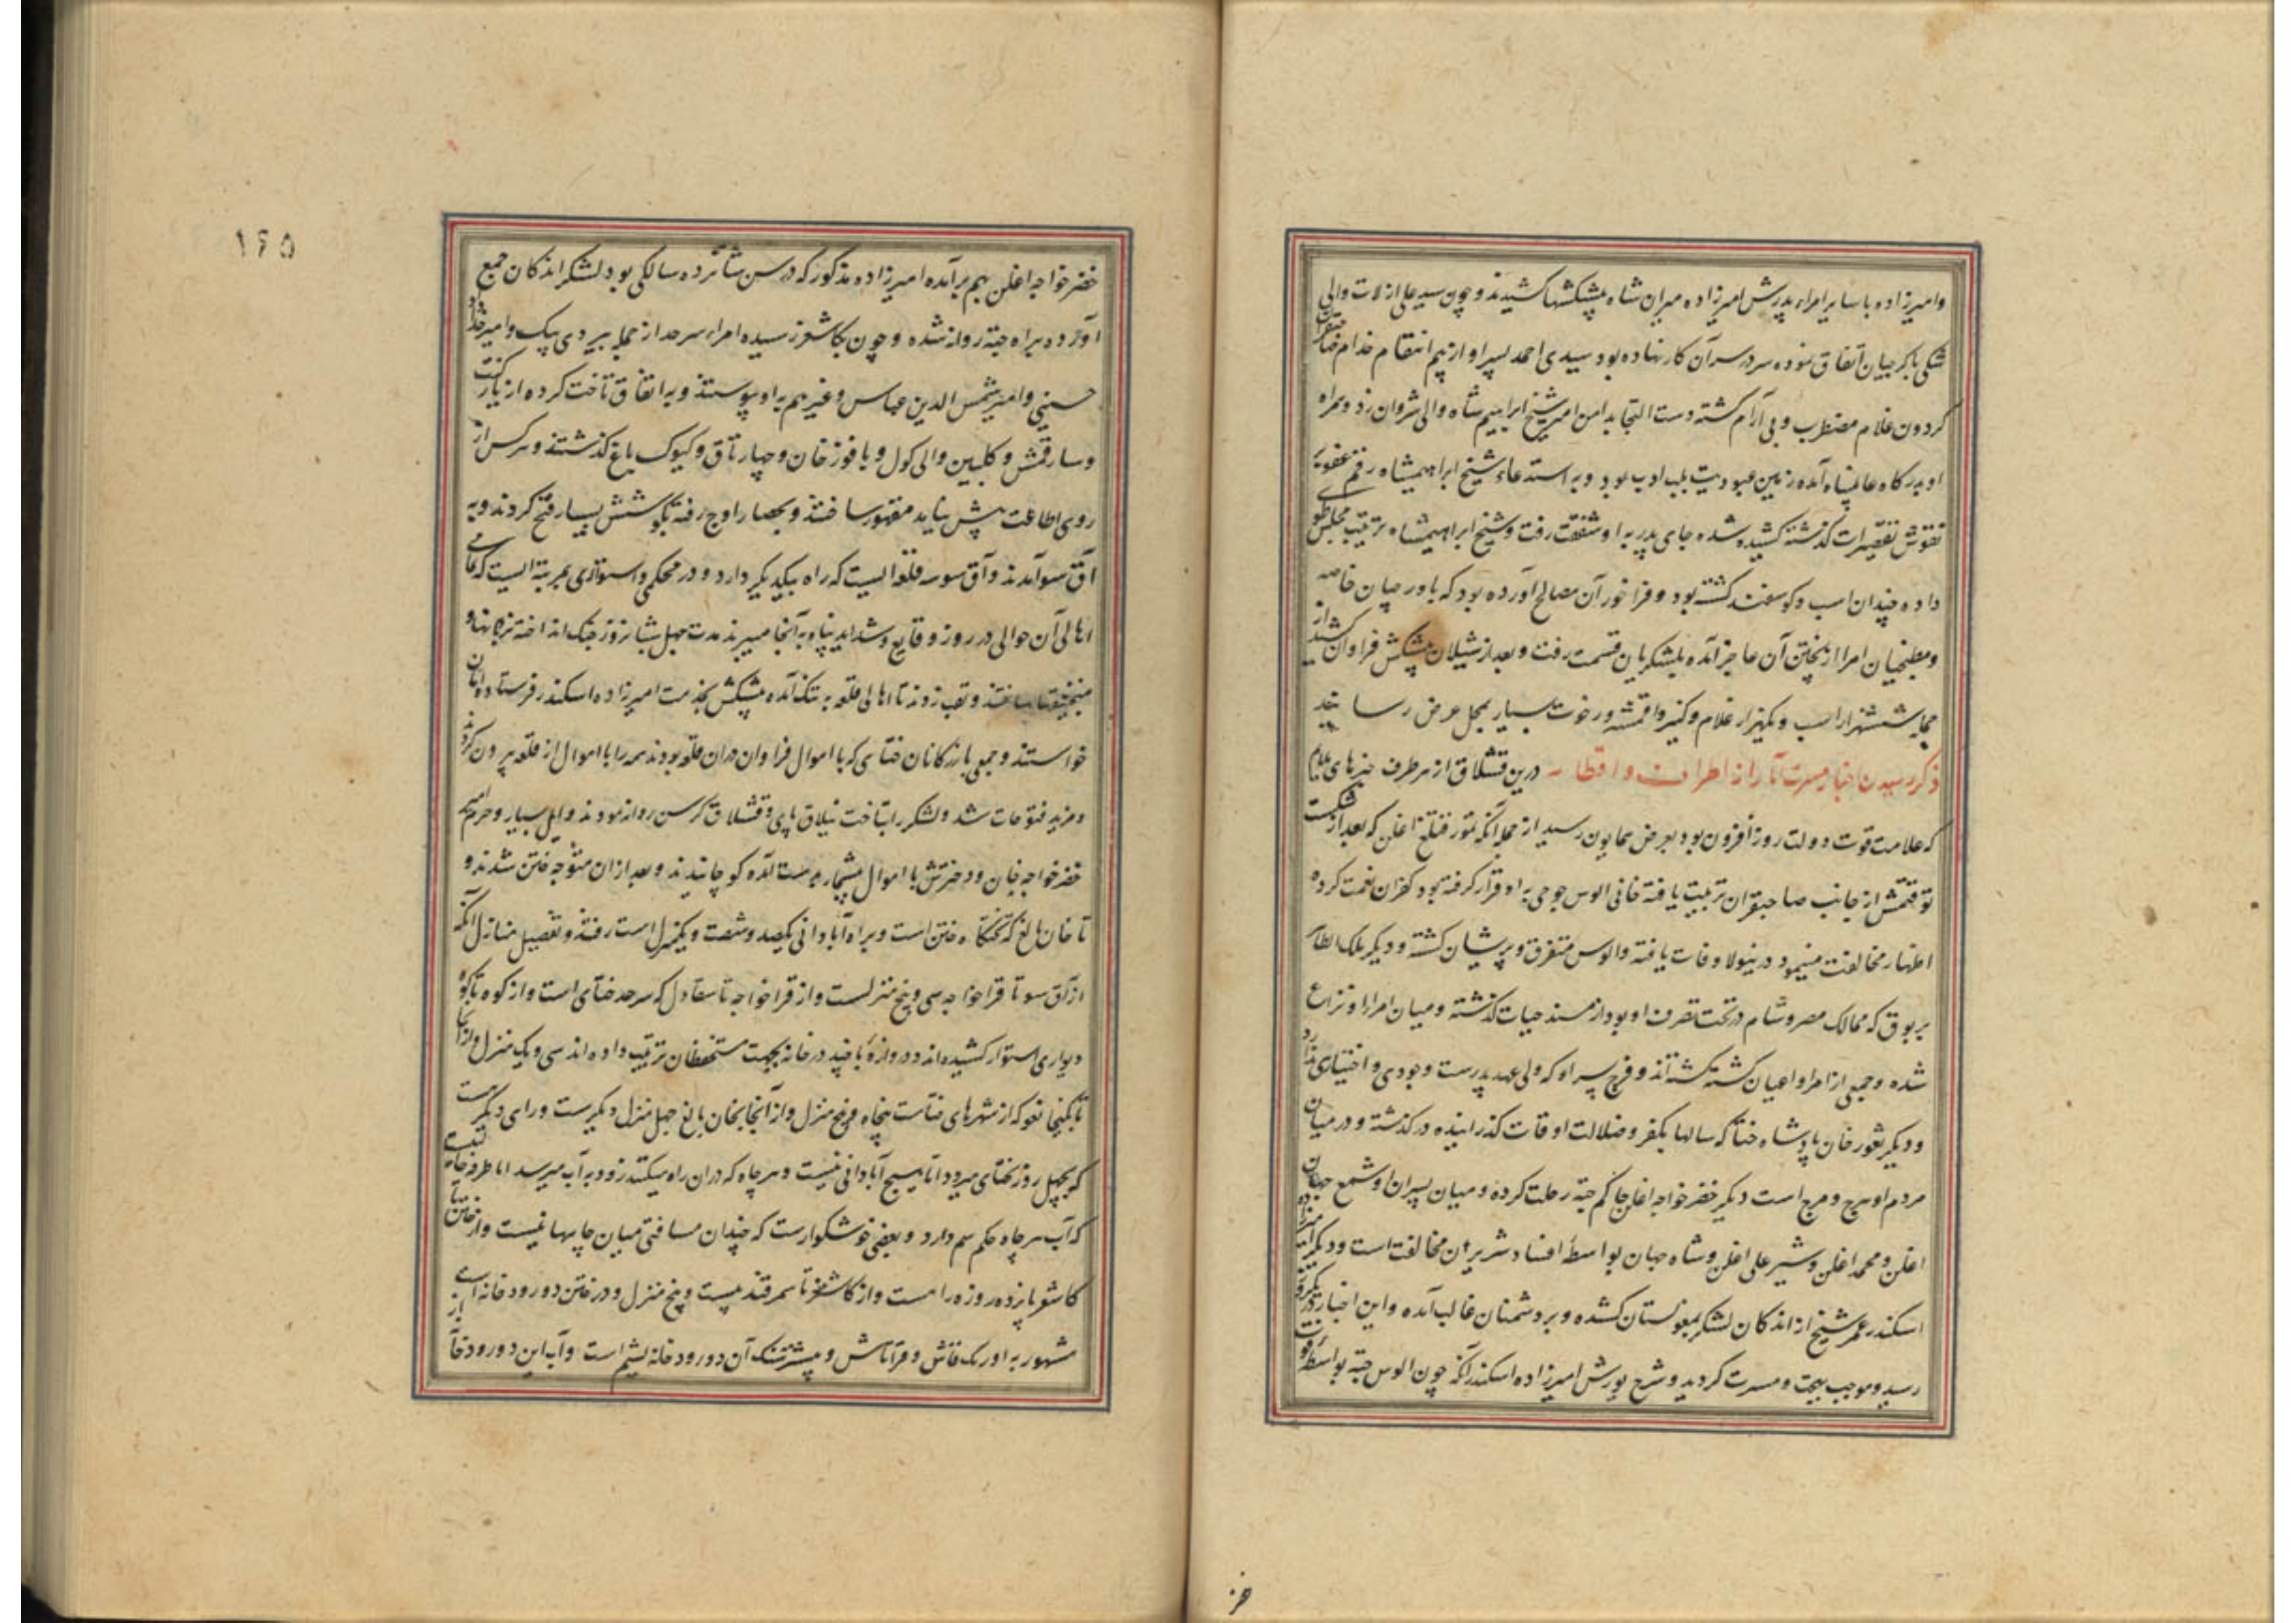 وامیرزاده با سایر امراء پدرش امیرزاده میران شاه پیشکشها کشیدند و چون سید علی ازلات والی
شکی با کرجیان اتفاق نموده سر در سر آن کار نهاده بود سیدی احمد پسر او از بیم انتقام خدام صاحبقران
کردون غلام مضطرب و بی آرام کشته دست التجا بدامن امیر شیخ ابراهیم شاه والی شروان زد و همراه
او بدرکاه عالمپناه آمده زمین عبودیت بلب ادب بود و به استدعاء شیخ ابراهیمشاه رقم عفو بر
نقوش تقصیرات کذشته کشیده شده جای پدر به او شفقت رفت و شیخ ابراهیمشاه ترتیب مجلس طوی
داده چندان اسب و کوسفند کشته بود و فراخور آن مصالح آورده بود که باورچیان خاصه
ومطبخیان امرا از پختن آن عاجز آمده بلشکریان قسمت رفت و بعد از شیلان پیشکش فراوان کشید از
جمله ششهزار اسب و یکهزار غلام وکنیز واقمشه ورخوت بسیار بمحل عرض رسانید
ذکر رسیدن اخبار مسرت آثار از اطراف واقطار درین قشلاق از هر طرف خبرهای ملایم
که علامت قوت دولت روز افزون بود بعرض همایون رسید از جمله آنکه تمور قتلغ اغلن که بعد از شکست
توقتمش از جانب صاحبقران تربیت یافته خانی الوس جوجی به او قرار کرفته بود کفران نعمت کرده
اظهار مخالفت مینمود درینولا وفات یافته والوس متفرق و پریشان کشته و دیکر ملک الظاهر
بربوق که ممالک مصر وشام در تحت تصرف او بود از مسند حیات کذشته و میان امراء او نزاع
شده و جمعی از امرا واعیان کشته کشته اند و فرج پسر او که ولی عهد پدرست وجودی و اختیاری ندارد
ودیکر تغور خان پادشاه ختا که سالها بکفر وضلالت اوقات کذرانیده درکذشته و در میان
مردم او هرج و مرج است دیکر خضر خواجه اغلن حاکم جته رحلت کرده و میان پسران او شمع جهان
اغلن و محمد اغلن و شیر علی اغلن و شاه جهان بواسطهٔ افساد شریران مخالفت است و دیکر امیرزاده
اسکندر عمر شیخ از اندکان لشکر بمغولستان کشده و بر دشمنان غالب آمده و این اخبار
رسید و موجب بهجت و مسرت کردید و شرح یورش امیرزاده اسکندر آنکه چون الوس جته بواسطهٔ فوت
خز
١٤٥
خضر خواجه اغلن بهم برآمده امیرزاده مذکور که در سن شانزده سالکی بود لشکر اندکان جمع
آورده براه جته روانه شده و چون بکاشغر رسیده امراء سرحد از جمله بیردی بیک وامیر خداداد
حسینی وامیر شمس الدین عباس وغیرهم به او پیوستند و به اتفاق تاخت کرده از یارکنت
وسارقمش و کلبین والی کول و یاقوز خان و چهار تاق و کیوک باغ کذشتند و هرکس از
روی اطاعت پیش نیاید مقهور ساختند و بحصار اوج رفته بکوشش بسیار فتح کردند و به
آق سو آمدند و آق سو سه قلعه ایست که راه بیکدیکر دارد و در محکمی و استواری بمرتبه ایست که تمامی
اهالی آن حوالی در روز وقایع و شداید پناه به آنجا میبرند مدت چهل شبانروز جنک انداخته نردبانها و
منجنیقها ساختند و نقب زدند تا اهالی قلعه به تنک آمده پیشکش بخدمت امیرزاده اسکندر فرستاده امان
خواستند و جمعی بازرکانان ختای که با اموال فراوان دران قلعه بودند همه را با اموال از قلعه بیرون کردند
و مزید فتوحات شد و لشکر را بتاخت ییلاق بای و قشلاق کرسن روانه نمودند و ایل بسیار وحرم امیر
خضر خواجه خان و دخترش با اموال بیشمار بدست آمده کوچانیدند و بعد از ان متوجه ختن شدند و
تا خان بالغ که تختکاه ختن است و براه آبادانی یکصد و شصت و یکمنزل است رفتند و تفصیل منازل آنکه
از آق سو تا قرا خواجه سی و پنج منزلست و از قرا خواجه تا سقاول که سرحد ختای است و از کوه تا کوه
دیواری استوار کشیده اند و دروازهٔ با چند در خانه بجهت مستحفظان ترتیب داده اند سی و یک منزل و از آنجا
تا بکنجانفو که از شهرهای ختاست پنجاه و پنج منزل و از آنجا بخان بالغ چهل منزل دیکرست و رای دیکر هست
که بچهل روز بختای میرود اما هیچ آبادانی نیست و هر چاه که دران راه میکنند زود به آب میرسد اما
که آب هر چاه حکم سم دارد و بعضی خوشکوارست که چندان مسافتی میان چاهها نیست و از ختن تا
کاشغر پانزده روزه راه است و از کاشغر تا سمرقند بیست و پنج منزل و در ختن دو رودخانه است
مشهور به اورنک قاش و قراقاش و بیشتر سنک آن دو رودخانه یشم است و آب این دو رودخانه از